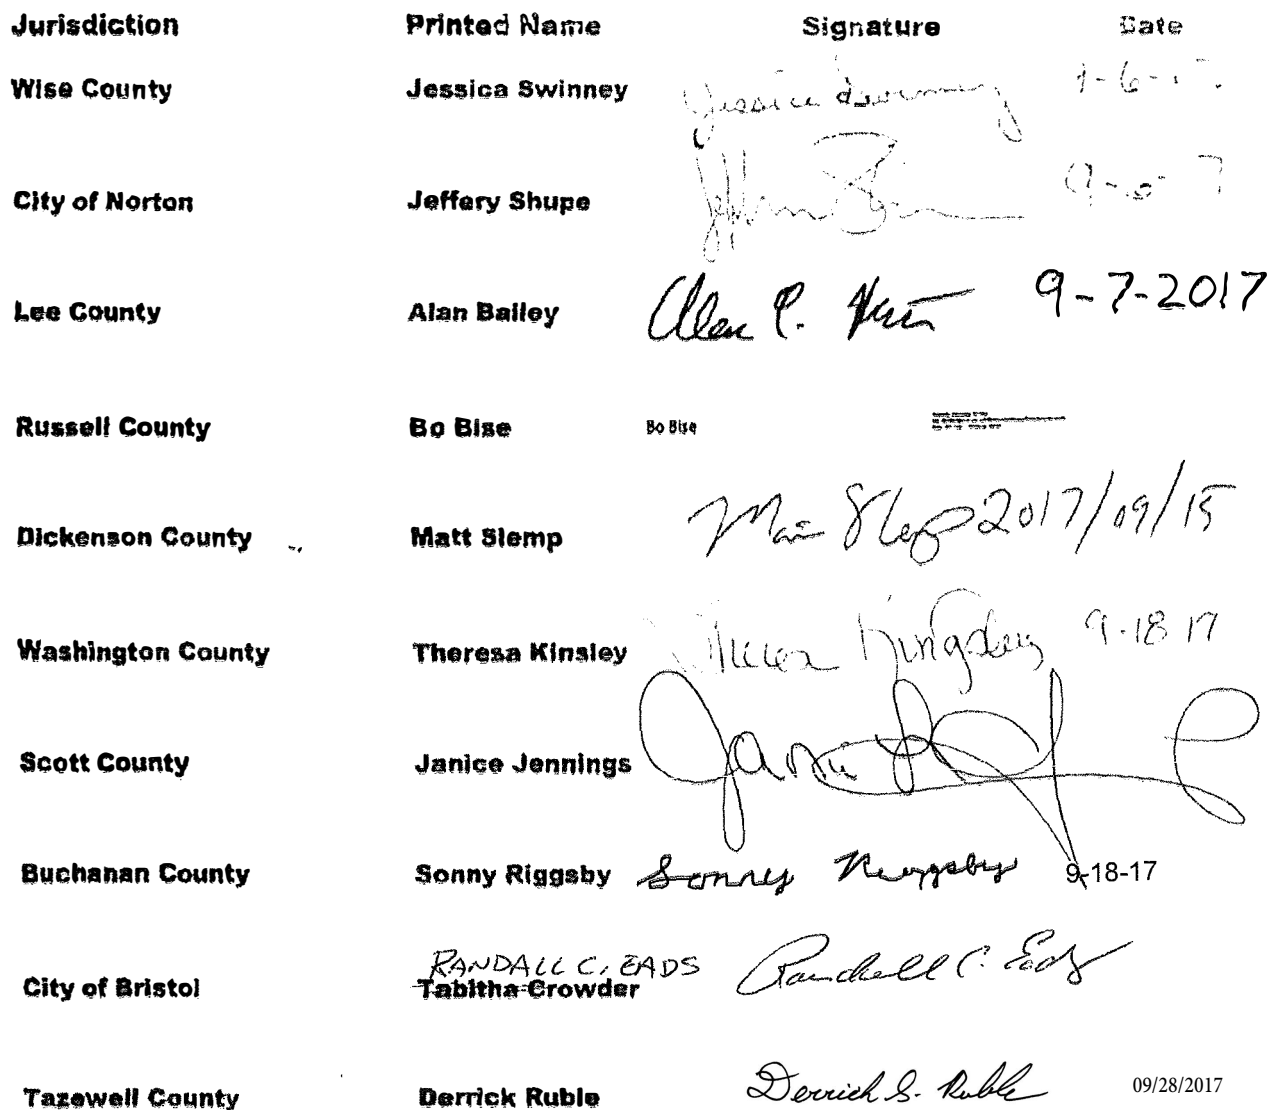 Jurisdiction Printed Name Signature Date
Wise County Jessica Swinney Jessica Swinney
City of Norton Jeffery Shupe
Lee County Alan Bailey Alan C. 9-7-2017
Russell County Bo Bise Bo Bise
Dickenson County Matt Slemp Matt Slemp 2017/09/15
Washington County Theresa Kinsley Theresa Kingsley 9-18 17
Scott County Janice Jennings
Buchanan County Sonny Riggsby Sonny Riggsby 9-18-17
RANDALL C. EADS Randall C. Eads
City of Bristol Tabitha Crowder
Tazewell County Derrick Ruble Derrick S. Ruble 09/28/2017